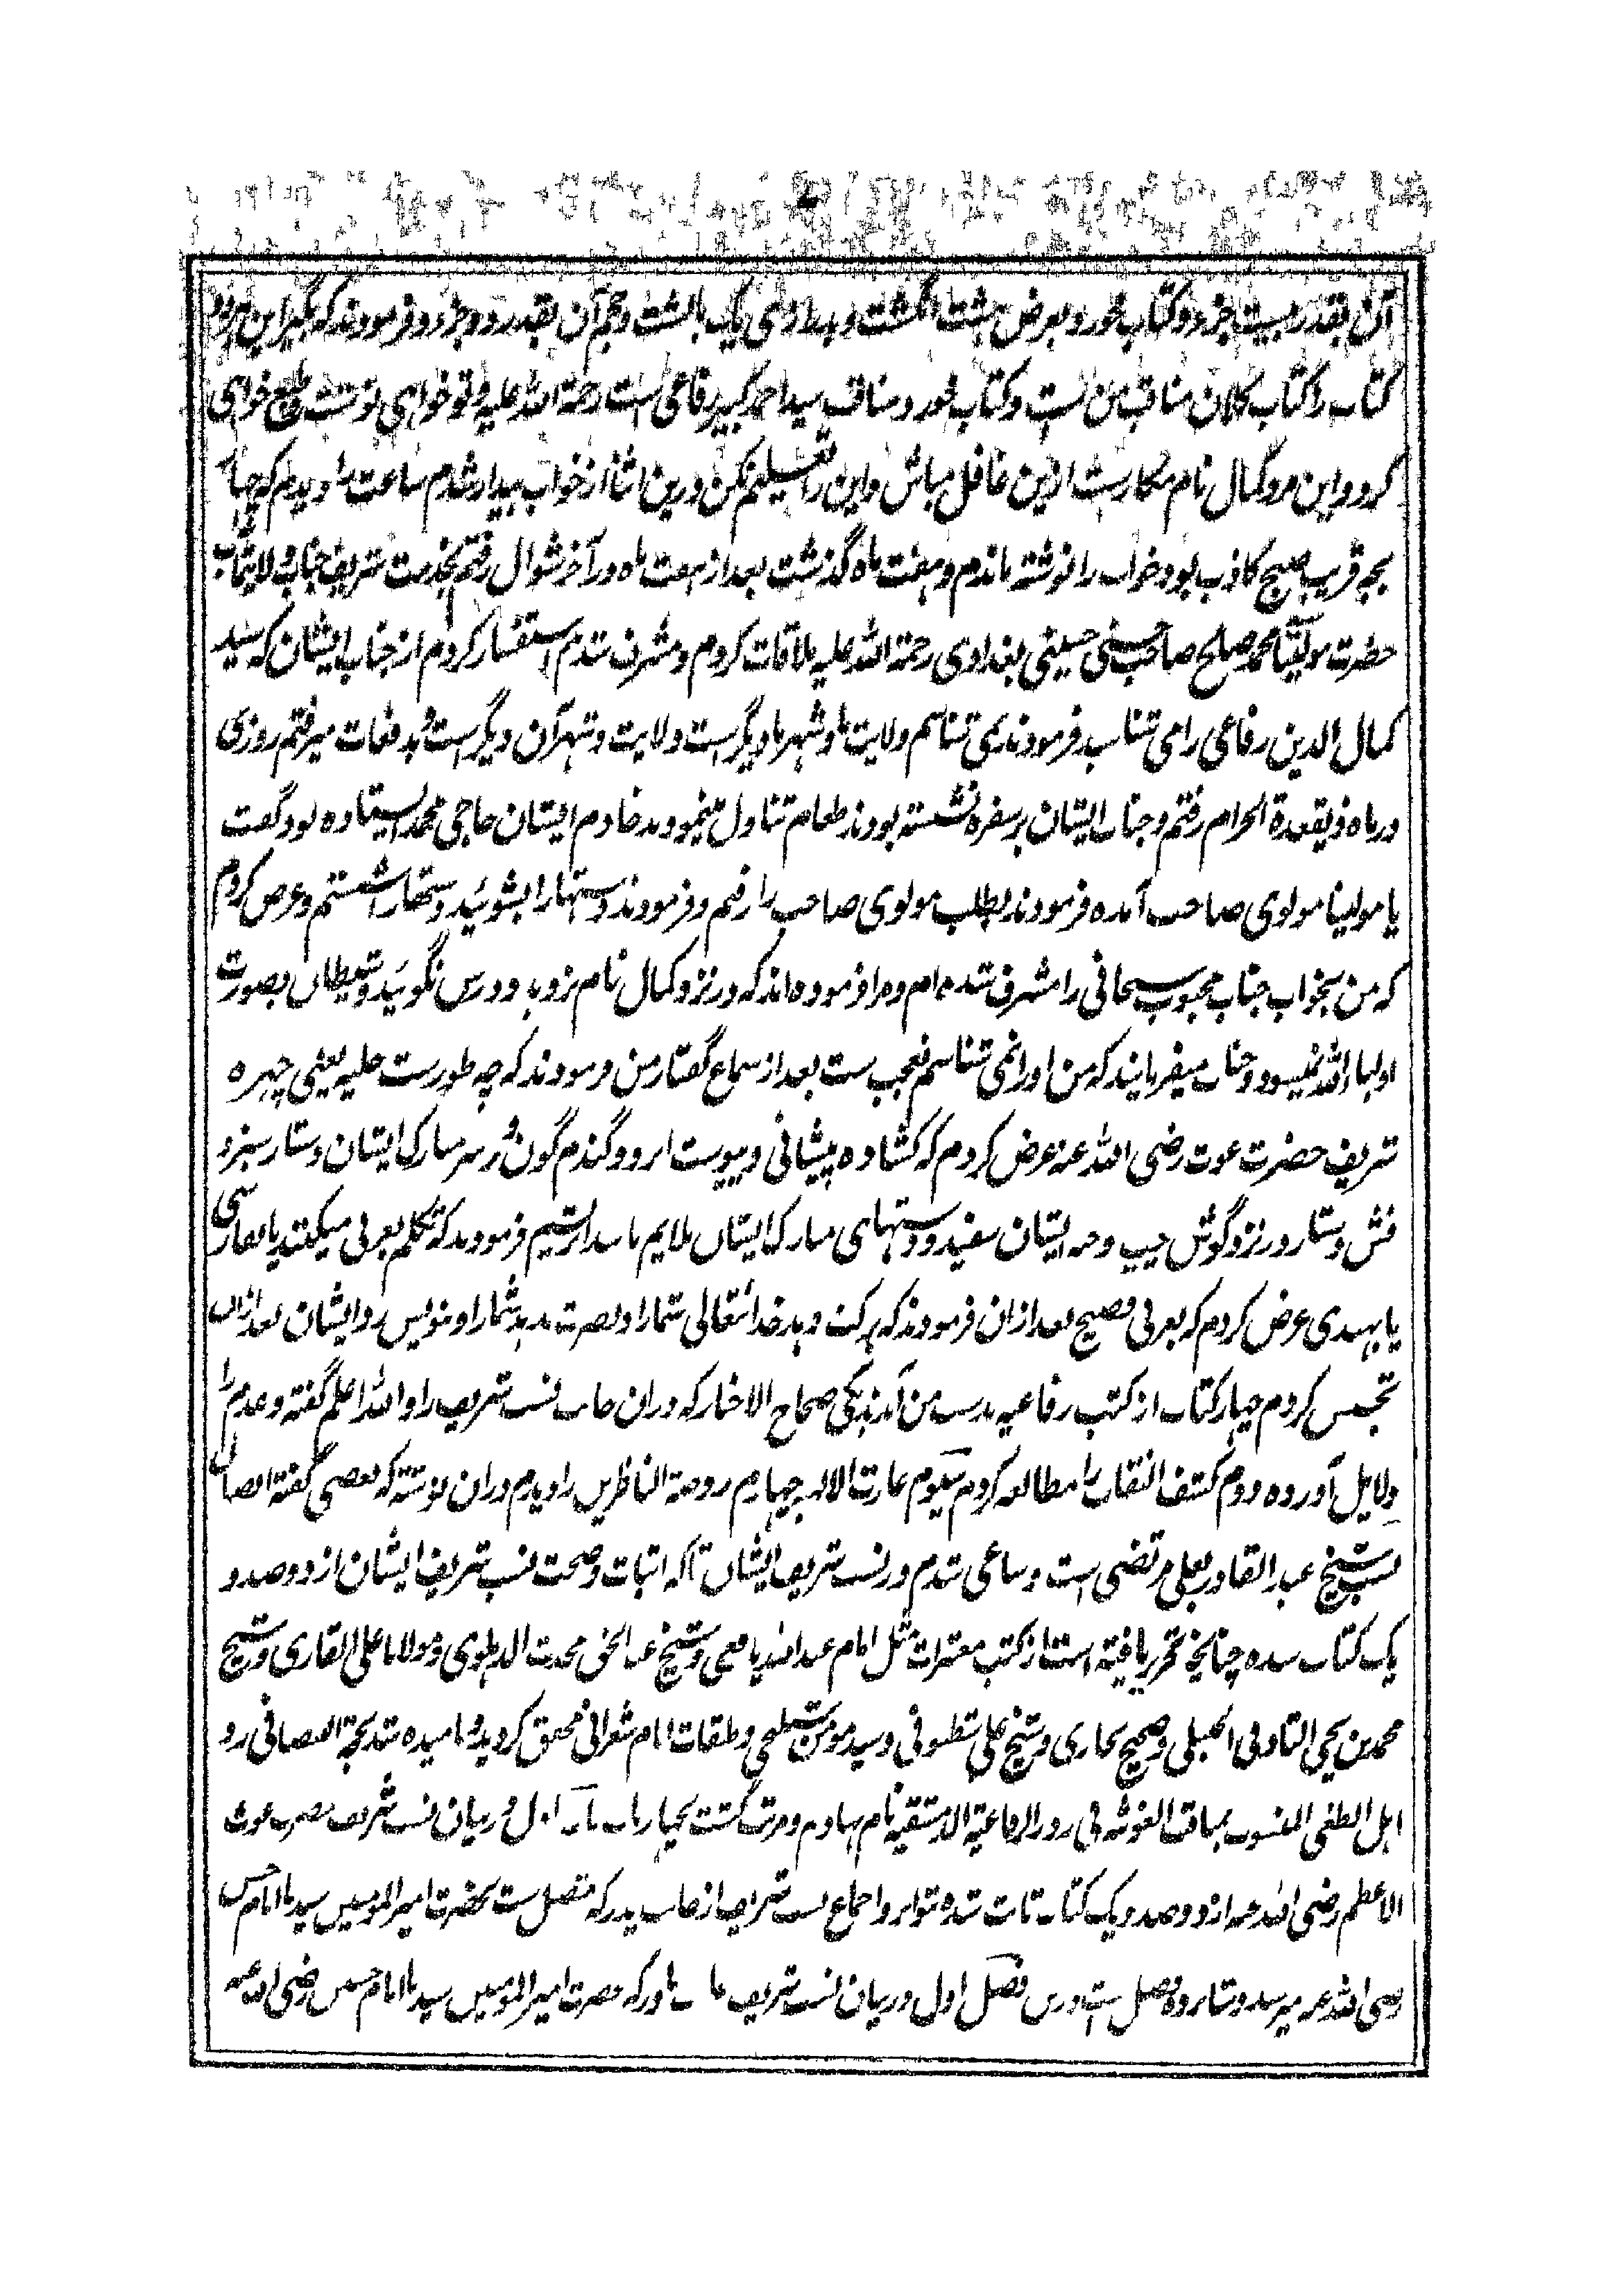 آن بقدر بیست جزو و کتاب خورد بعرض هشت انگشت و بدرازی یک بالشت و حجم آن بقدر دو جزو و فرمودند که بگیر این هر دو
کتاب را کتاب کلان مناقب من است و کتاب خورد مناقب سید احمد کبیر رفاعی است رحمة الله علیه و تو خواهی نوشت و طبع خواهی
کرد و این مرد کمال نام مکارست ازین غافل مباش و این را تعلیم مکن درین اثنا از خواب بیدار شدم ساعت را دیدم که چهار
بجه قریب صبح کاذب بود خواب را نوشته ماندم و هفت ماه گذشت بعد از هفت ماه در آخر شوال رفتم بخدمت شریف جناب ولایتمآب
حضرت مولینا محمد صالح صاحب حسنی حسینی بغدادی رحمة الله علیه ملاقات کردم و مشرف شدم استفسار کردم از جناب ایشان که سید
کمال الدین رفاعی را می شناسید فرمودند نمی شناسم ولایت ما و شهر ما دیگر است و ولایت و شهر آن دیگر است و بدفعات میرفتم روزی
در ماه ذیقعدة الحرام رفتم و جناب ایشان بر سفره نشسته بودند طعام تناول مینمودند خادم ایشان حاجی محمد ایستاده بود گفت
یا مولینا مولوی صاحب آمده فرمودند بطلب مولوی صاحب را رفتم و فرمودند دستها را بشوئید دستها را شستم و عرض کردم
که من بخواب جناب محبوب سبحانی را مشرف شده ام و مرا فرموده اند که در نزد کمال نام نرو و درس نگوئید و شیطان بصورت
اولیاء الله نمیشود و جناب میفرمایند که من او را نمی شناسم تعجب ست بعد از سماع گفتار من فرمودند که چه طورست حلیه یعنی چهره
شریف حضرت غوث رضی الله عنه عرض کردم که کشاده پیشانی و پیوست ابرو و گندم گون و بر سر مبارک ایشان دستار سبز و
فش دستار در نزد گوش چپ و جبه ایشان سفید و دستهای مبارک ایشان ملایم مانند ابریشم فرمودند که تکلم بعربی میکنند یا بفارسی
یا بهندی عرض کردم که بعربی فصیح بعد ازان فرمودند که برکت دهد خدا تعالی شما را و نصرت بدهد شما را و نویس رد ایشان بعد ازان
تجسس کردم چهار کتاب از کتب رفاعیه بدست من آمدند یکی صحاح الاخبار که دران جناب نسب شریف را والله اعلم گفته و عدم را
دلایل آورده دوم کشف النقاب را مطالعه کردم سیوم غارت الالهیه چهارم روضة الناظرین را دیدم دران نوشته که بعضی گفته اتصال
نسب شیخ عبد القادر بعلی مرتضی است و ساعی شدم در نسب شریف ایشان تا آنکه اثبات و صحت نسب شریف ایشان از دو صد و
یک کتاب شده چنانچه تحریر یافته است از کتب معتبرات مثل امام عبد الله یافعی و شیخ عبد الحق محدث الدهلوی و مولانا علی القاری و شیخ
محمد بن یحیی التادفی الحنبلی و صحیح بخاری و شیخ علی شطنوفی و سید مومن شبلنجی و طبقات امام شعرانی محقق کردید و نامیده شد بحجة العصافی رد
اهل الطغی المنسوب بمناقب الغوثیه فی رد الرفاعیة الدمشقیه نام نهادم و مرتب گشت بچهار باب باب اول در بیان نسب شریف حضرت غوث
الاعظم رضی الله عنه از دو صد و یک کتاب ثابت شده تواتر و اجماع نسب شریف از جناب پدر که متصل ست بحضرت امیر المومنین سیدنا امام حسن
رضی الله عنه میرسد و شانزده فصل است درین فصل اول در بیان نسب شریف جناب مادر که حضرت امیر المومنین سیدنا امام حسین رضی الله عنه